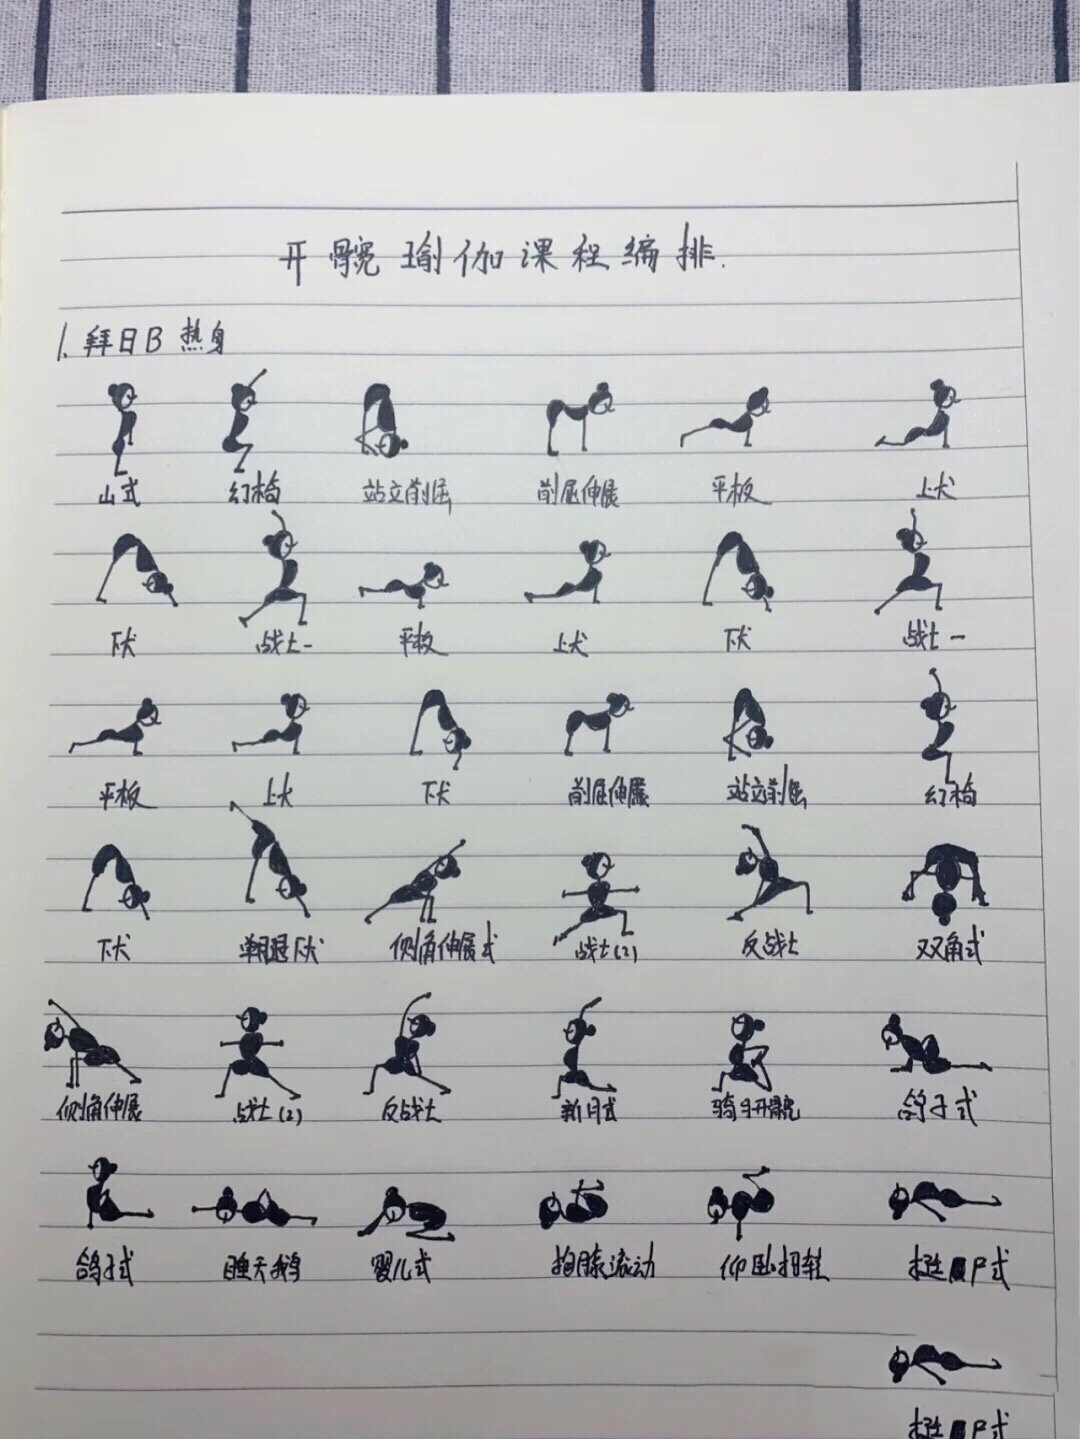 开髋瑜伽课程编排.
1. 拜日B 热身
山式 幻椅 站立前屈 前屈伸展 平板 上犬
下犬 战士一 平板 上犬 下犬 战士一
平板 上犬 下犬 前屈伸展 站立前屈 幻椅
下犬 单腿下犬 侧角伸展式 战士(2) 反战士 双角式
侧角伸展 战士(2) 反战士 新月式 骑马开髋 鸽子式
鸽子式 睡天鹅 婴儿式 抱膝滚动 仰卧扭转 挺尸式
挺尸式